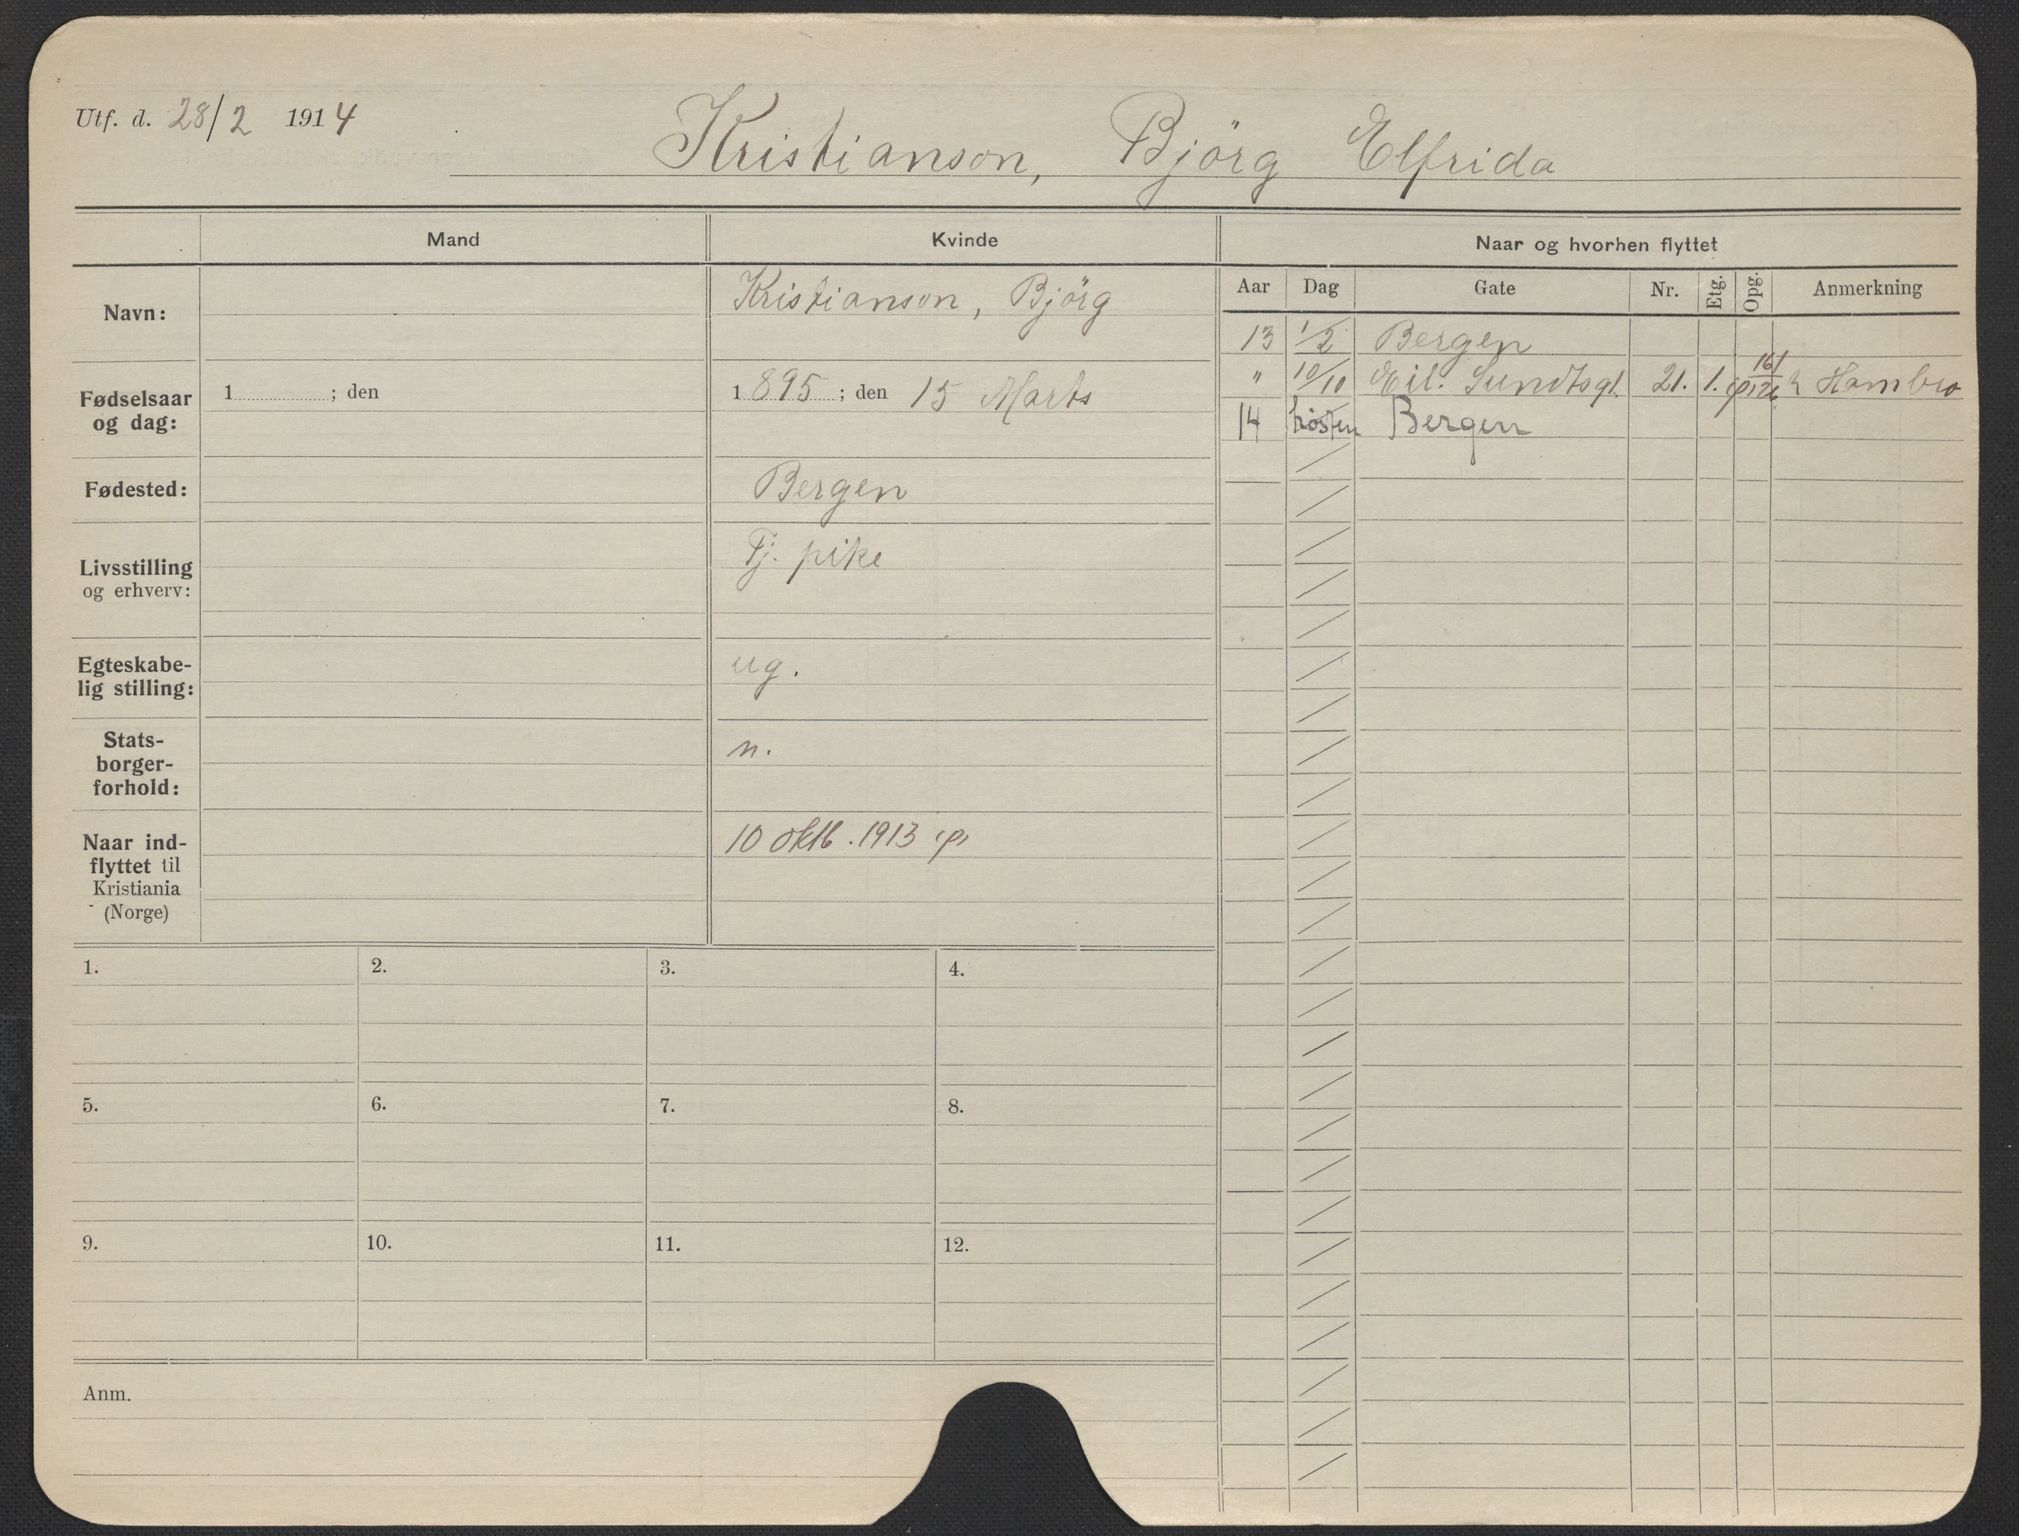 Utf. d. 28/2 1914
Kristianson, Björg Elfrida
Mand
Kvinde
Navn:
Kristianson, Björg
Fødselsaar
og dag:
1 ; den
1895 ; den 15 Marts
Fødested:
Bergen
Livsstilling
og erhverv:
Tj. pike
Egteskabe-
lig stilling:
ug.
Stats-
borger-
forhold:
n.
Naar ind-
flyttet til
Kristiania
(Norge)
10 oktb. 1913
1.
2.
3.
4.
5.
6.
7.
8.
9.
10.
11.
12.
Anm.
Naar og hvorhen flyttet
Aar Dag Gate Nr. Etg. Opg. Anmerkning
13 1/2 Bergen
" 10/10 Eil. Sundtsgt. 21. 1. Hambro
14 høsten Bergen